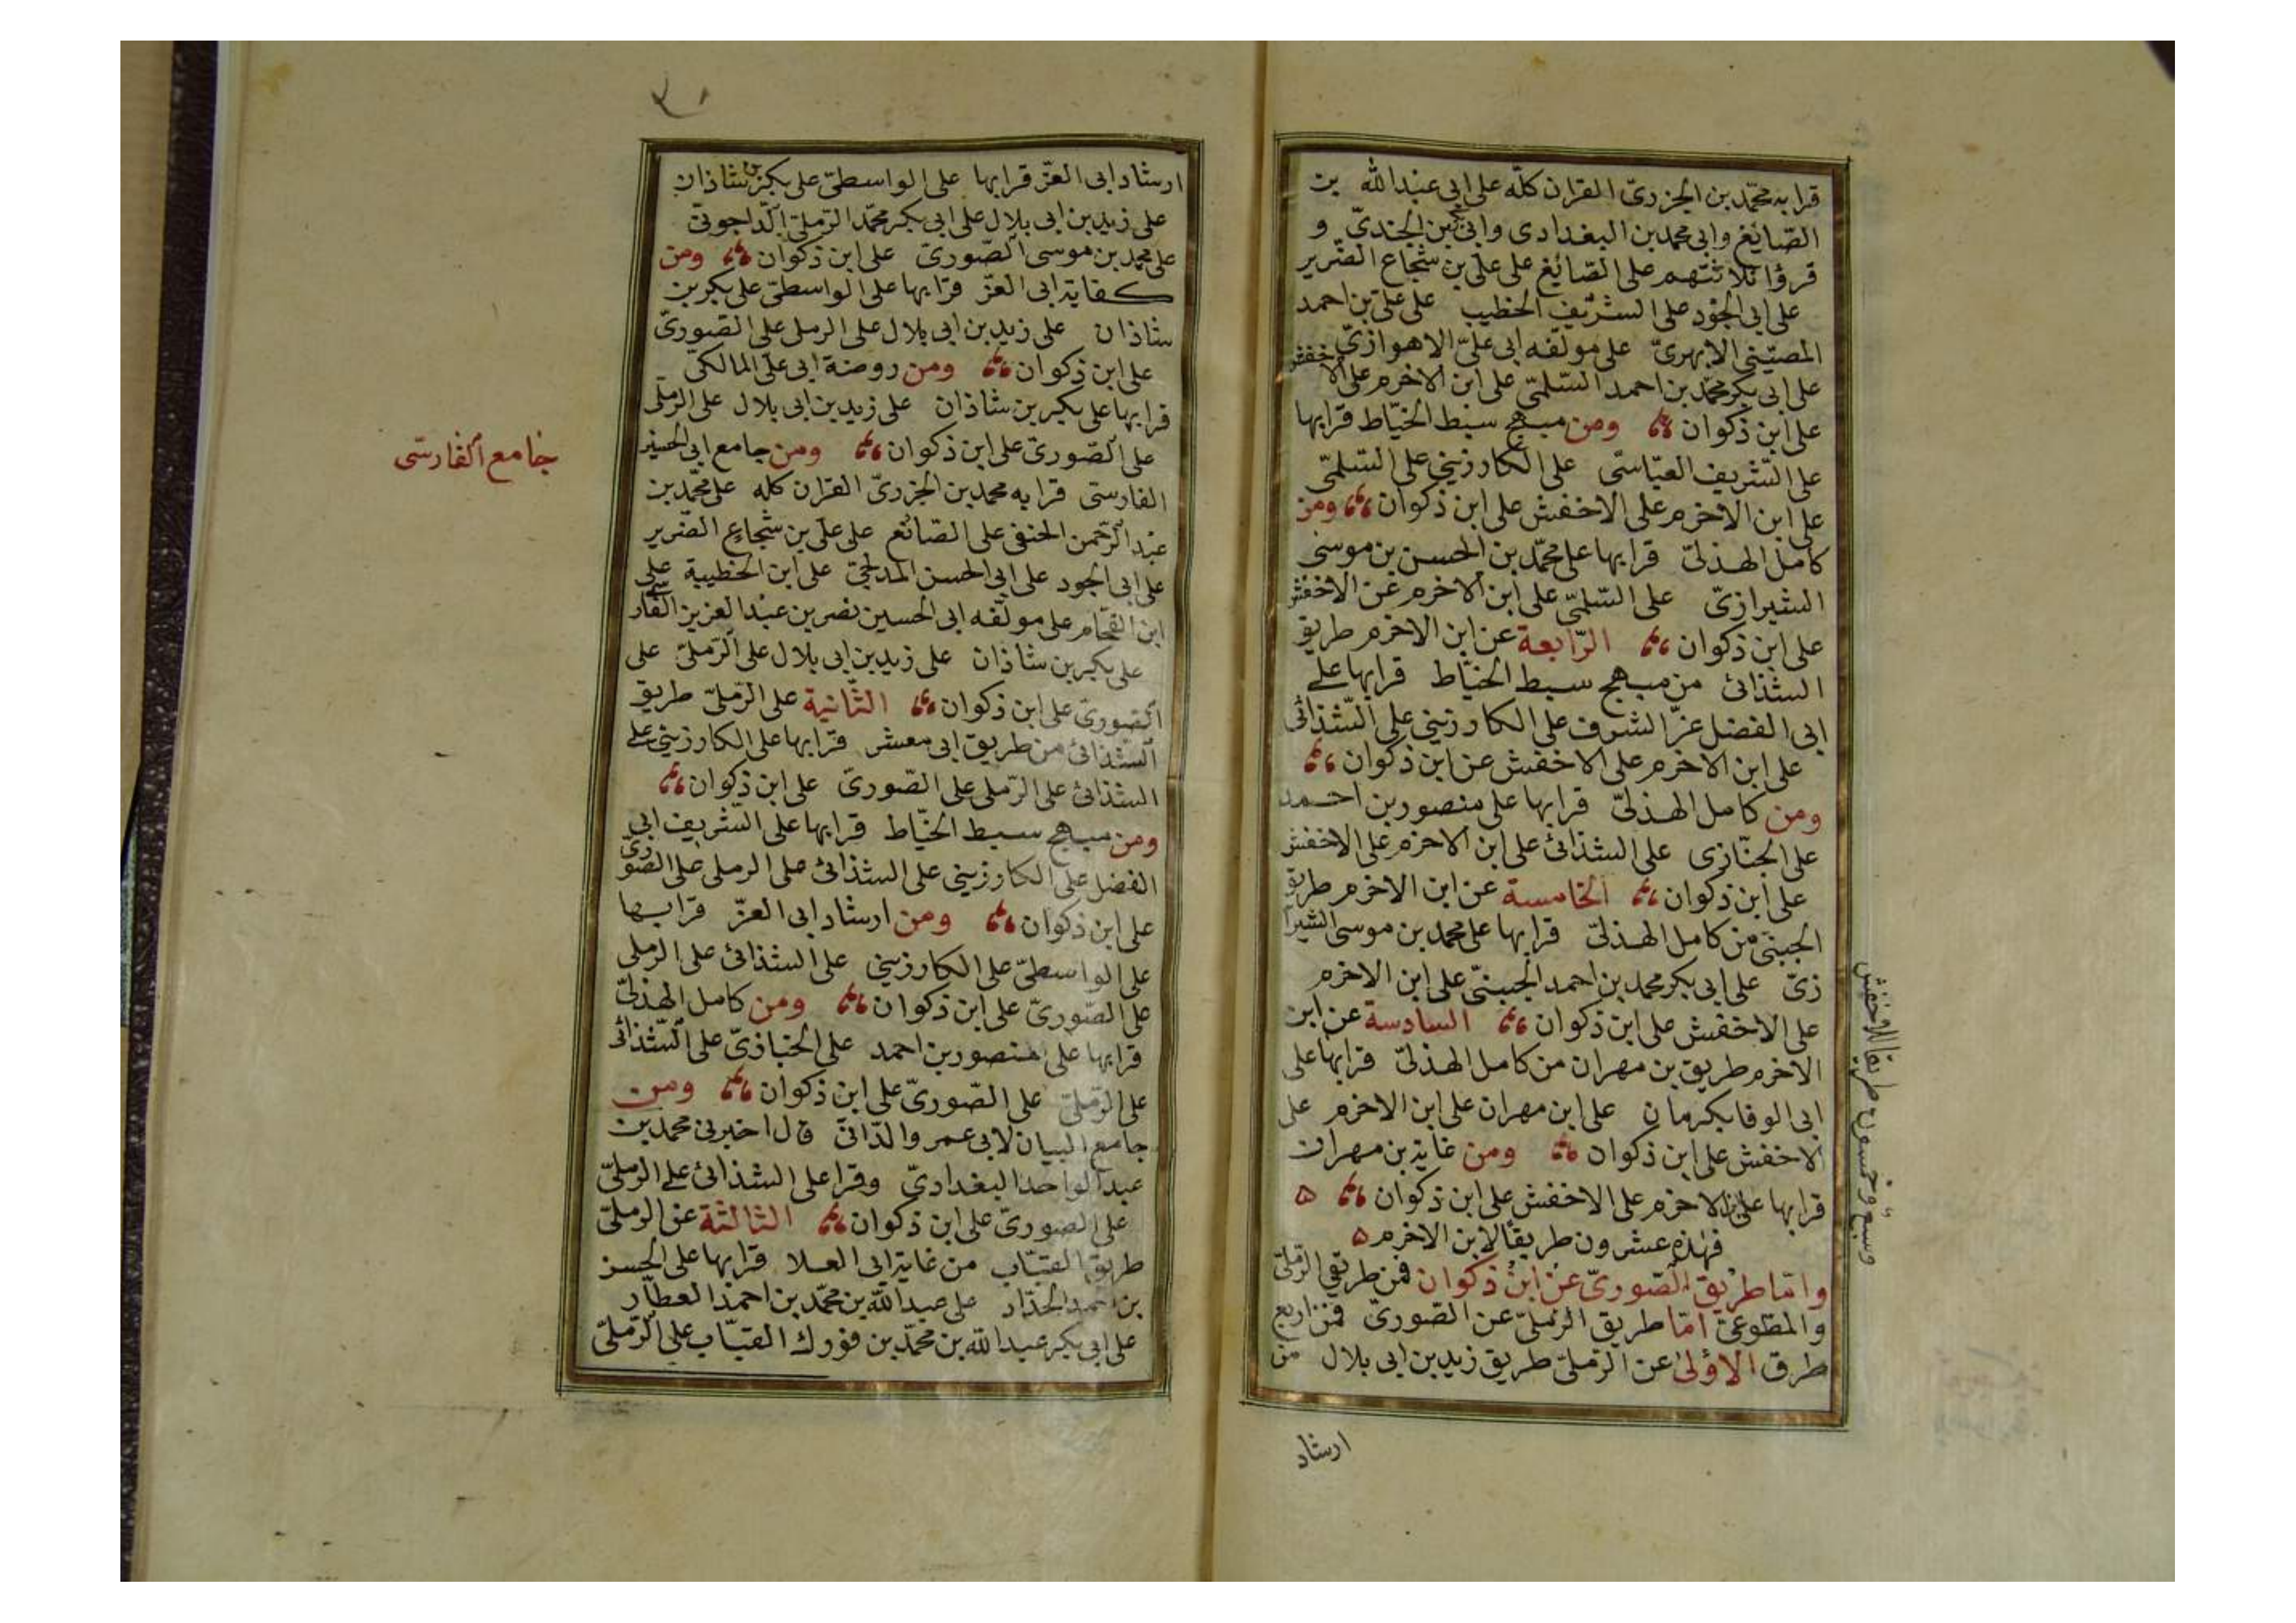 قرا به محمد بن الجزرىّ القران كلّه على ابى عبد الله بن
الصّايغ وابى محمد بن البغدادى وابى بكر بن الجندىّ و
قرؤا ثلاثتهم على الصّائغ على علىّ بن شجاع الضّرير
على ابى الجود على الشريف الخطيب على علىّ بن احمد
المصيّنى الابهرىّ على مولفه ابى علىّ الاهوازىّ
على ابى بكر محمّد بن احمد السّلمىّ على ابن الاخرم على الاخفش
على ابن ذكوان ومن مبهج سبط الخيّاط قرا بها
على الشّريف العبّاسى على الكارزينى على السّلمىّ
على ابن الاخرم على الاخفش على ابن ذكوان ومن
كامل الهذلىّ قرا بها على محمّد بن الحسن بن موسى
الشيرازىّ على السّلمىّ على ابن الاخرم عن الاخفش
على ابن ذكوان الرّابعة عن ابن الاخرم طريق
الشذائ من مبهج سبط الخيّاط قرا بها على
ابى الفضل عزّ الشرف على الكارزينى على الشّذائى
على ابن الاخرم على الاخفش عن ابن ذكوان
ومن كامل الهذلىّ قرا بها على منصور بن احمد
على الخبّازى على الشذائ على ابن الاخرم على الاخفش
على ابن ذكوان الخامسة عن ابن الاخرم طريق
الجبنىّ من كامل الهذلىّ قرا بها على محمد بن موسى الشيرا
زىّ على ابى بكر محمد بن احمد الجبنىّ على ابن الاخرم
على الاخفش على ابن ذكوان السادسة عن ابن
الاخرم طريق بن مهران من كامل الهذلىّ قرا بها على
ابى الوفا بكرمان على ابن مهران على ابن الاخرم على
الاخفش على ابن ذكوان ومن غاية بن مهران
قرا بها على ابن الاخرم على الاخفش على ابن ذكوان ۵
فهذه عشرون طريقاً لابن الاخرم ۵
وامّا طريق الصّورىّ عن ابن ذكوان فمن طريقى الرّملىّ
والمطّوعىّ امّا طريق الرّملىّ عن الصّورىّ فمن اربع
طرق الاولى عن الرّملىّ طريق زيد بن ابى بلال من
ارشاد
وسبع وخمسون طريقا للاخفش
ارشاد ابى العزّ قرا بها على الواسطىّ على بكر بن شاذان
على زيد بن ابى بلال على ابى بكر محمّد الرّملىّ الدّاجونىّ
على محمد بن موسى الصّورىّ على ابن ذكوان ومن
كفاية ابى العزّ قرا بها على الواسطىّ على بكر بن
شاذان على زيد بن ابى بلال على الرملى على الصّورىّ
على ابن ذكوان ومن روضة ابى على المالكىّ
قرا بها على بكر بن شاذان على زيد بن ابى بلال على الرّملّى
على الصّورىّ على ابن ذكوان ومن جامع ابى الحسين
الفارسى قرا به محمد بن الجزرىّ القران كله على محمّد بن
عبد الرّحمن الحنفى على الصّائغ على على بن شجاع الضّرير
على ابى الجود على ابى الحسن المدلجىّ على ابن الحطيبة على
ابن الفحّام على مولّفه ابى الحسين نصر بن عبد العزيز الفارسى
على بكر بن شاذان على زيد بن ابى بلال على الرّملىّ على
الصّورىّ على ابن ذكوان الثّانية على الرّملىّ طريق
الشّذائى من طريق ابى معشر قرا بها على الكارزينى على
الشذائ على الرّملى على الصّورىّ على ابن ذكوان
ومن مبهج سبط الخيّاط قرا بها على الشّريف ابى
الفضل على الكارزينى على الشذائ على الرملى على الصّورىّ
على ابن ذكوان ومن ارشاد ابى العزّ قرا بها
على الواسطىّ على الكارزينى على الشذائ على الرملى
على الصّورىّ على ابن ذكوان ومن كامل الهذلىّ
قرا بها على منصور بن احمد على الخبازىّ على الشّذائى
على الرّملىّ على الصّورىّ على ابن ذكوان ومن
جامع البيان لابى عمرو الدّانىّ قال اخبرنى محمد بن
عبد الواحد البغدادىّ وقرا على الشذائى على الرملىّ
على الصورىّ على ابن ذكوان الثالثة عن الرملىّ
طريق القبّاب من غاية ابى العلا قرا بها على الحسن
بن احمد الحدّاد على عبد الله بن محمّد بن احمد العطّار
على ابى بكر عبد الله بن محمّد بن فورك القبّاب على الرّملىّ
جامع الفارسّى